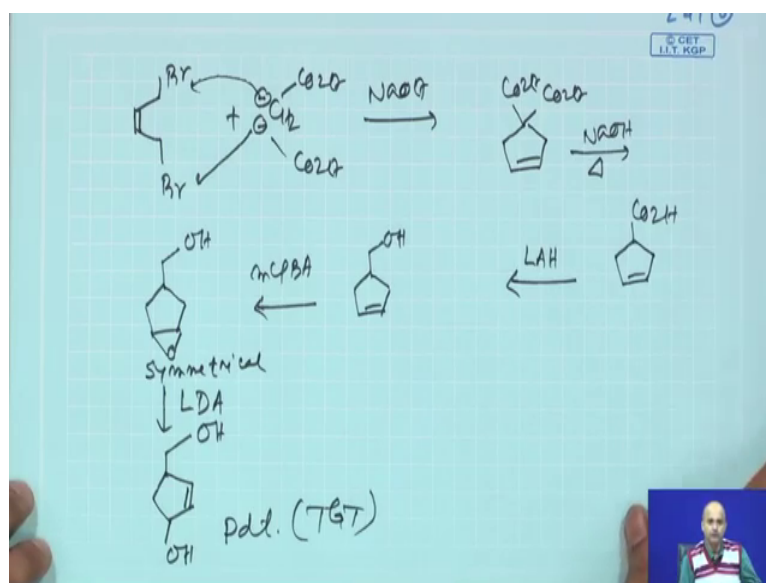 © CET
I.I.T. KGP
Br
CO2Et
⊖
+
CH2
⊖
NaOEt
CO2Et
Br
CO2Et CO2Et
NaOH
Δ
CO2H
LAH
OH
mCPBA
OH
O
Symmetrical
LDA
OH
OH
Pdt. (TGT)